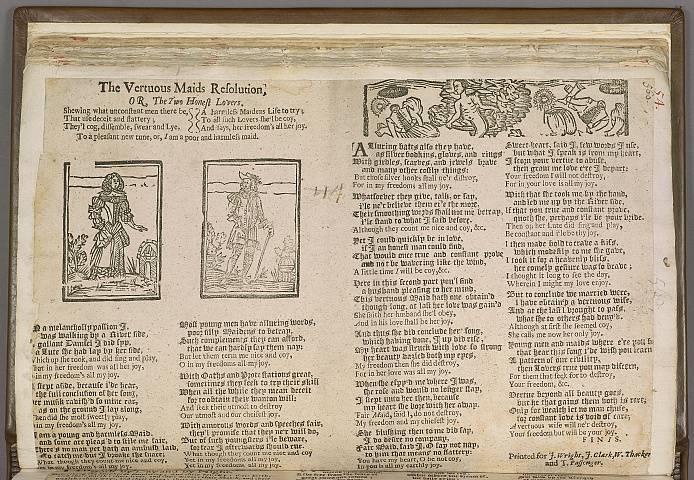 The Vertuous Maids Resolution,
OR, The Two Honest Lovers.
Shewing what unconstant men there be,
That use deceit and flattery;
They'l cog, dissemble, swear and Lye,
A harmless Maidens Life to try;
To all such Lovers she'l be coy,
And says, her freedom's all her joy.
To a pleasant new tune, or, I am a poor and harmless maid.
In a melancholly passion I,
was walking by a River side,
gallant Damsel I did spy,
a Lute she had lay by her side,
Which up she took, and did sing and play,
For in her freedom was all her joy,
in my freedom's all my joy.
I stept aside, because i'de hear,
the full conclusion of her song,
her musick ravish'd so mine ear,
as on the ground I lay along,
then did she most sweetly play,
in my freedom's all my joy.
I am a young and harmless Maid,
and some are pleas'd to like me fair,
There's no man yet hath an unkindly laid,
To catch me in
What though they count me nice and coy,
in my freedom's all my joy.
Most young men have alluring words,
poor silly Maidens to betray,
Such complements they can afford,
that we can hardly say them nay:
But let them term me nice and coy,
O in my freedoms all my joy.
With Oaths and Protestations great,
sometimes they seek to try their skill
When all the while they mean deceit
for to obtain their wanton will:
And seek their utmost to destroy
Our utmost and our chiefest joy.
With amorous words and speeches fair,
they'l promise that they ne'r will do,
But of such youngsters i'le beware,
to fear I afterwards should rue.
What though they count me nice and coy
Yet in my freedoms all my joy.
Alluring baits also they have,
as silver bodkins, gloves, and rings
With girdles, scarves, and jewels brave
and many other costly things:
But those silver hooks shall ne'r destroy,
For in my freedoms all my joy.
Whatsoever they give, talk, or say,
i'le ne'r believe them e're the more,
Their smoothing words shall not me betray,
i'le stand to what I said before.
Although they count me nice and coy, &c.
Yet I could quickly be in love,
if I an honest man could find,
That would once true and constant prove
and not be wavering like the wind,
A little time I will be coy, &c.
Here in this second part you'l find
a husband pleasing to her mind,
This vertuous Maid hath one obtain'd
though long, at last her love was gain'd
She saith her husband she'l obey,
And in his love shall be her joy.
And thus she did conclude her song,
which having done, I up did rise,
My heart was struck with love so strong
her beauty dazled both my eyes,
My freedom then she did destroy,
For in her love was all my joy.
When she espy'd me where I was,
she rose and would no longer stay,
I stept unto her then, because
my heart she bore with her away.
Fair Maid, said I, do not destroy,
My freedom and my chiefest joy.
She blushing then to me did say,
I do desire no company.
Fair Maid, said I, O say not nay,
to him that means no flattery:
You have my heart, O be not coy,
In you is all my earthly joy.
Sweet-heart, said I, few words I use,
but what I speak is from my heart,
I scorn your vertue to abuse,
then grant me love e're I depart:
Your freedom I will not destroy,
For in your love is all my joy.
With that she took me by the hand,
and led me up by the River side,
If that you true and constant prove,
quoth she, perhaps i'le be your bride.
Then on her Lute did sing and play,
Be constant and i'le be thy joy.
I then made bold to crave a kiss,
which modestly to me she gave,
I took it for a heavenly bliss,
her comely gesture was so brave;
I thought it long to see the day,
Wherein I might my love enjoy.
But to conclude we married were,
I have obtain'd a vertuous wife,
And at the last I bought to pass,
what she to others had deny'd.
Although at first she seemed coy,
She calls me now her only joy.
Young men and maids where e're you be
that hear this song i'de wish you learn
A pattern of our civility,
then Lovers true you may discern,
For them that seek for to destroy,
Your freedom, &c.
Vertue beyond all beauty goes,
but he that gains them both is rare;
Only for wealth let no man chuse,
for constant love is void of care;
A vertuous wife will ne'r destroy,
Your freedom but will be your joy.
FINIS.
Printed for J. Wright, J. Clark, W. Thacker
and T. Passenger.